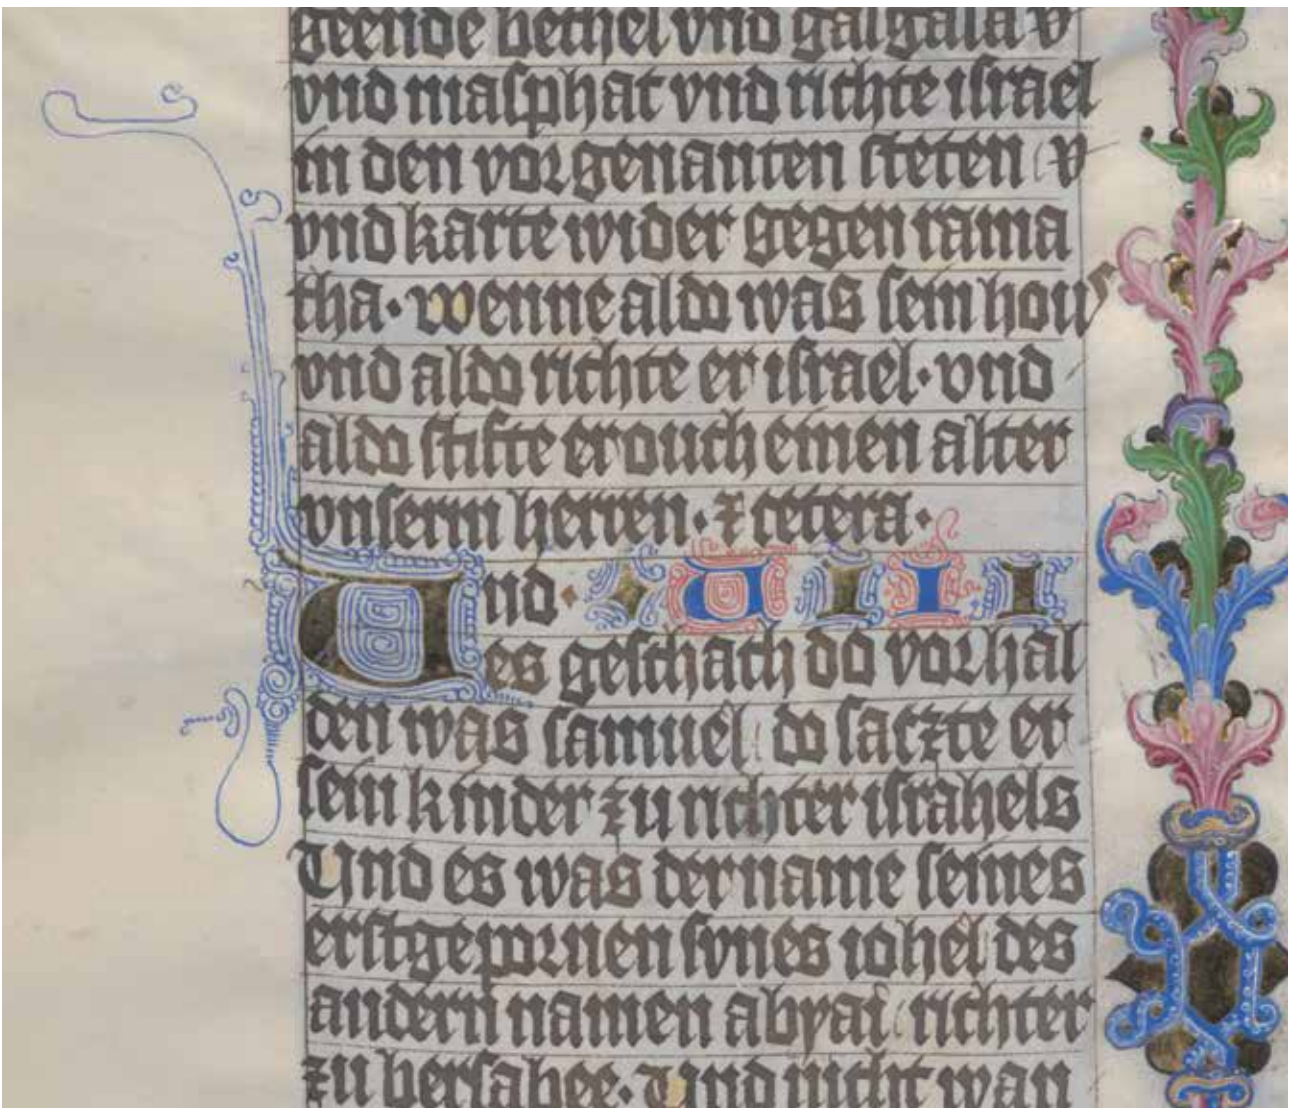 geende bethel vnd galgala v
vnd masphat vnd richte israel
in den vorgenanten steten v
vnd karte wider gegen rama
tha · wenne aldo was sein hous
vnd aldo richte er israel · vnd
aldo stifte er ouch einen alter
vnserm herren · ⁊ cetera ·
Und · · V I I I
es geschach do vor hal
den was samuel do saczte er
sein kinder zu richter israhels
Und es was der name seines
erstgepornen synes iohel des
andern namen abyai richter
zu bersabee · Und nicht wan